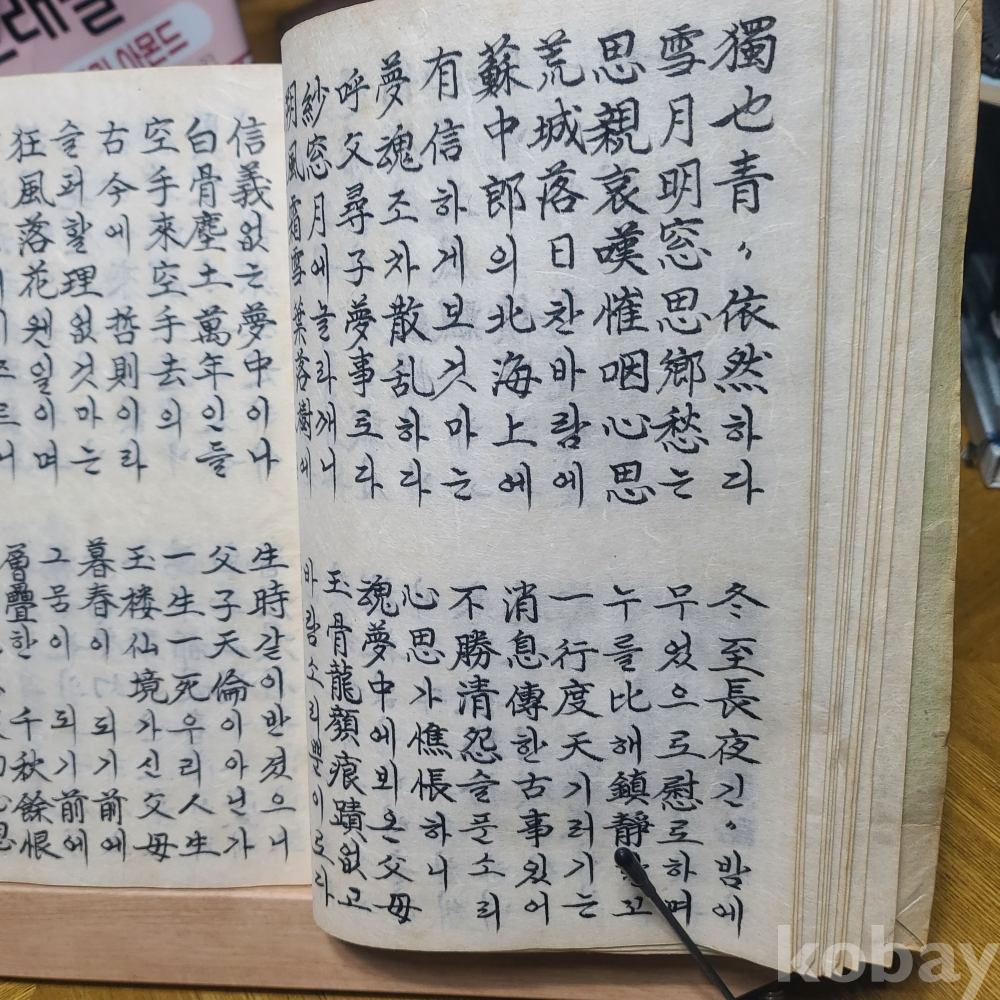 獨也青〃依然하다 冬至長夜긴〃밤에
雪月明窓思鄉愁는 무었으로慰로하며
思親哀嘆 咽心思 누를比해鎮靜 고
荒城落日찬바람에 一行度天기러기는
蘇中郎의北海上에 消息傳한古事있어
有信하게보것마는 不勝清怨슬푼소리
夢魂조차散乱하다 心思가憔悵하니
呼父尋子夢事로다 魂夢中에뵈온父母
紗窓月에놀라깨니 玉骨龍顔痕蹟없고
明風霜雪葉落樹에 바람소리뿐이로다
信義없는夢中이나 生時갈이반겼으니
白骨塵土萬年인들 父子天倫이아닌가
空手來空手去의 一生一死우리人生
古今에哲則이라 玉楼仙境가신父母
슬퍼할理없것마는 暮春이되기前에
狂風落花웬일이며 그몸이되기前에
層疊한千秋餘恨
kobay